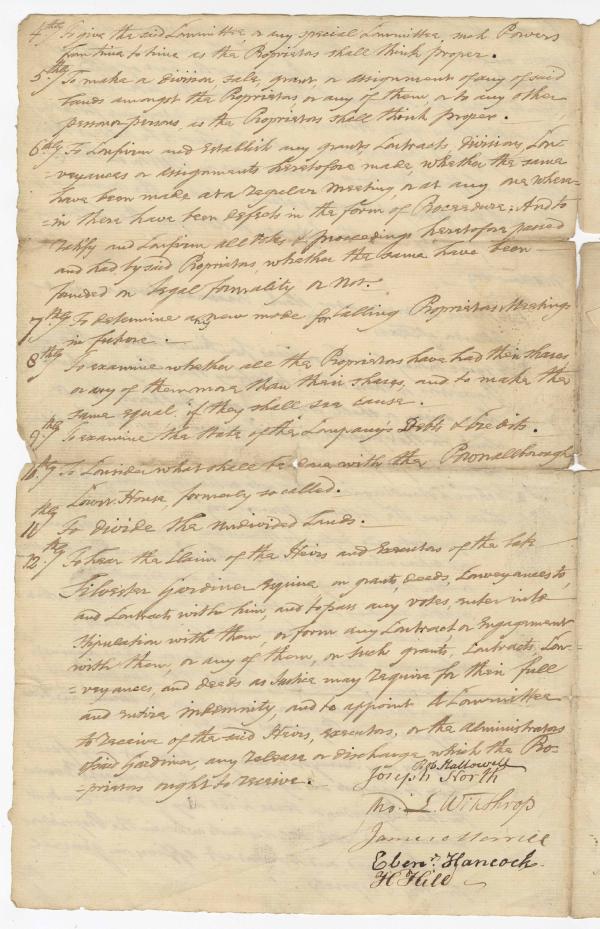 4thly To give the said Committee or any special Committee, such Powers
from time to time as the Proprietors shall think proper.
5thly To make a division sale, grant, or assignment of any of said
Lands amongst the Proprietors, or any of them, or to any other
person or persons, as the Proprietors shall think proper.
6thly To Confirm and establish any grants Contracts, divisions, Con-
=veyances or assignments heretofore made, whether the same
have been made at a regular meeting, or at any one where-
=in there have been defects in the form of Proceedure: And to
ratify and Confirm all Votes & proceedings heretofore passed
and had by said Proprietors, whether the same have been
founded on legal formality or not.
7thly To determine any new mode for Calling Proprietors Meetings
in future.
8thly To examine whether all the Proprietors have had their shares
or any of them more than their shares, and to make the
same equal if they shall see cause.
9thly To examine the state of the Company's Debts & Credits.
10thly To Consider what shall be done with the Pownallborough
Court House, formerly so called.
11thly To divide the undivided Lands.
12thly To hear the Claim of the Heirs and Executors of the late
Silvester Gardiner Esquire on grants, deeds, Conveyances to,
and Contracts with him, and to pass any votes, enter into
stipulation with them, or form any Contract or Engagement
with them, or any of them, on such grants, Contracts, Con-
=veyances, and deeds as Justice may require for their full
and entire indemnity, and to appoint a Committee
to receive of the said Heirs, executors, or the administrators
of said Gardiner, any release or discharge which the Pro-
=prietors ought to receive.
Rob Hallowell
Joseph North
Tho. L. Winthrop
James Merrill
Eben.r Hancock
H Hill